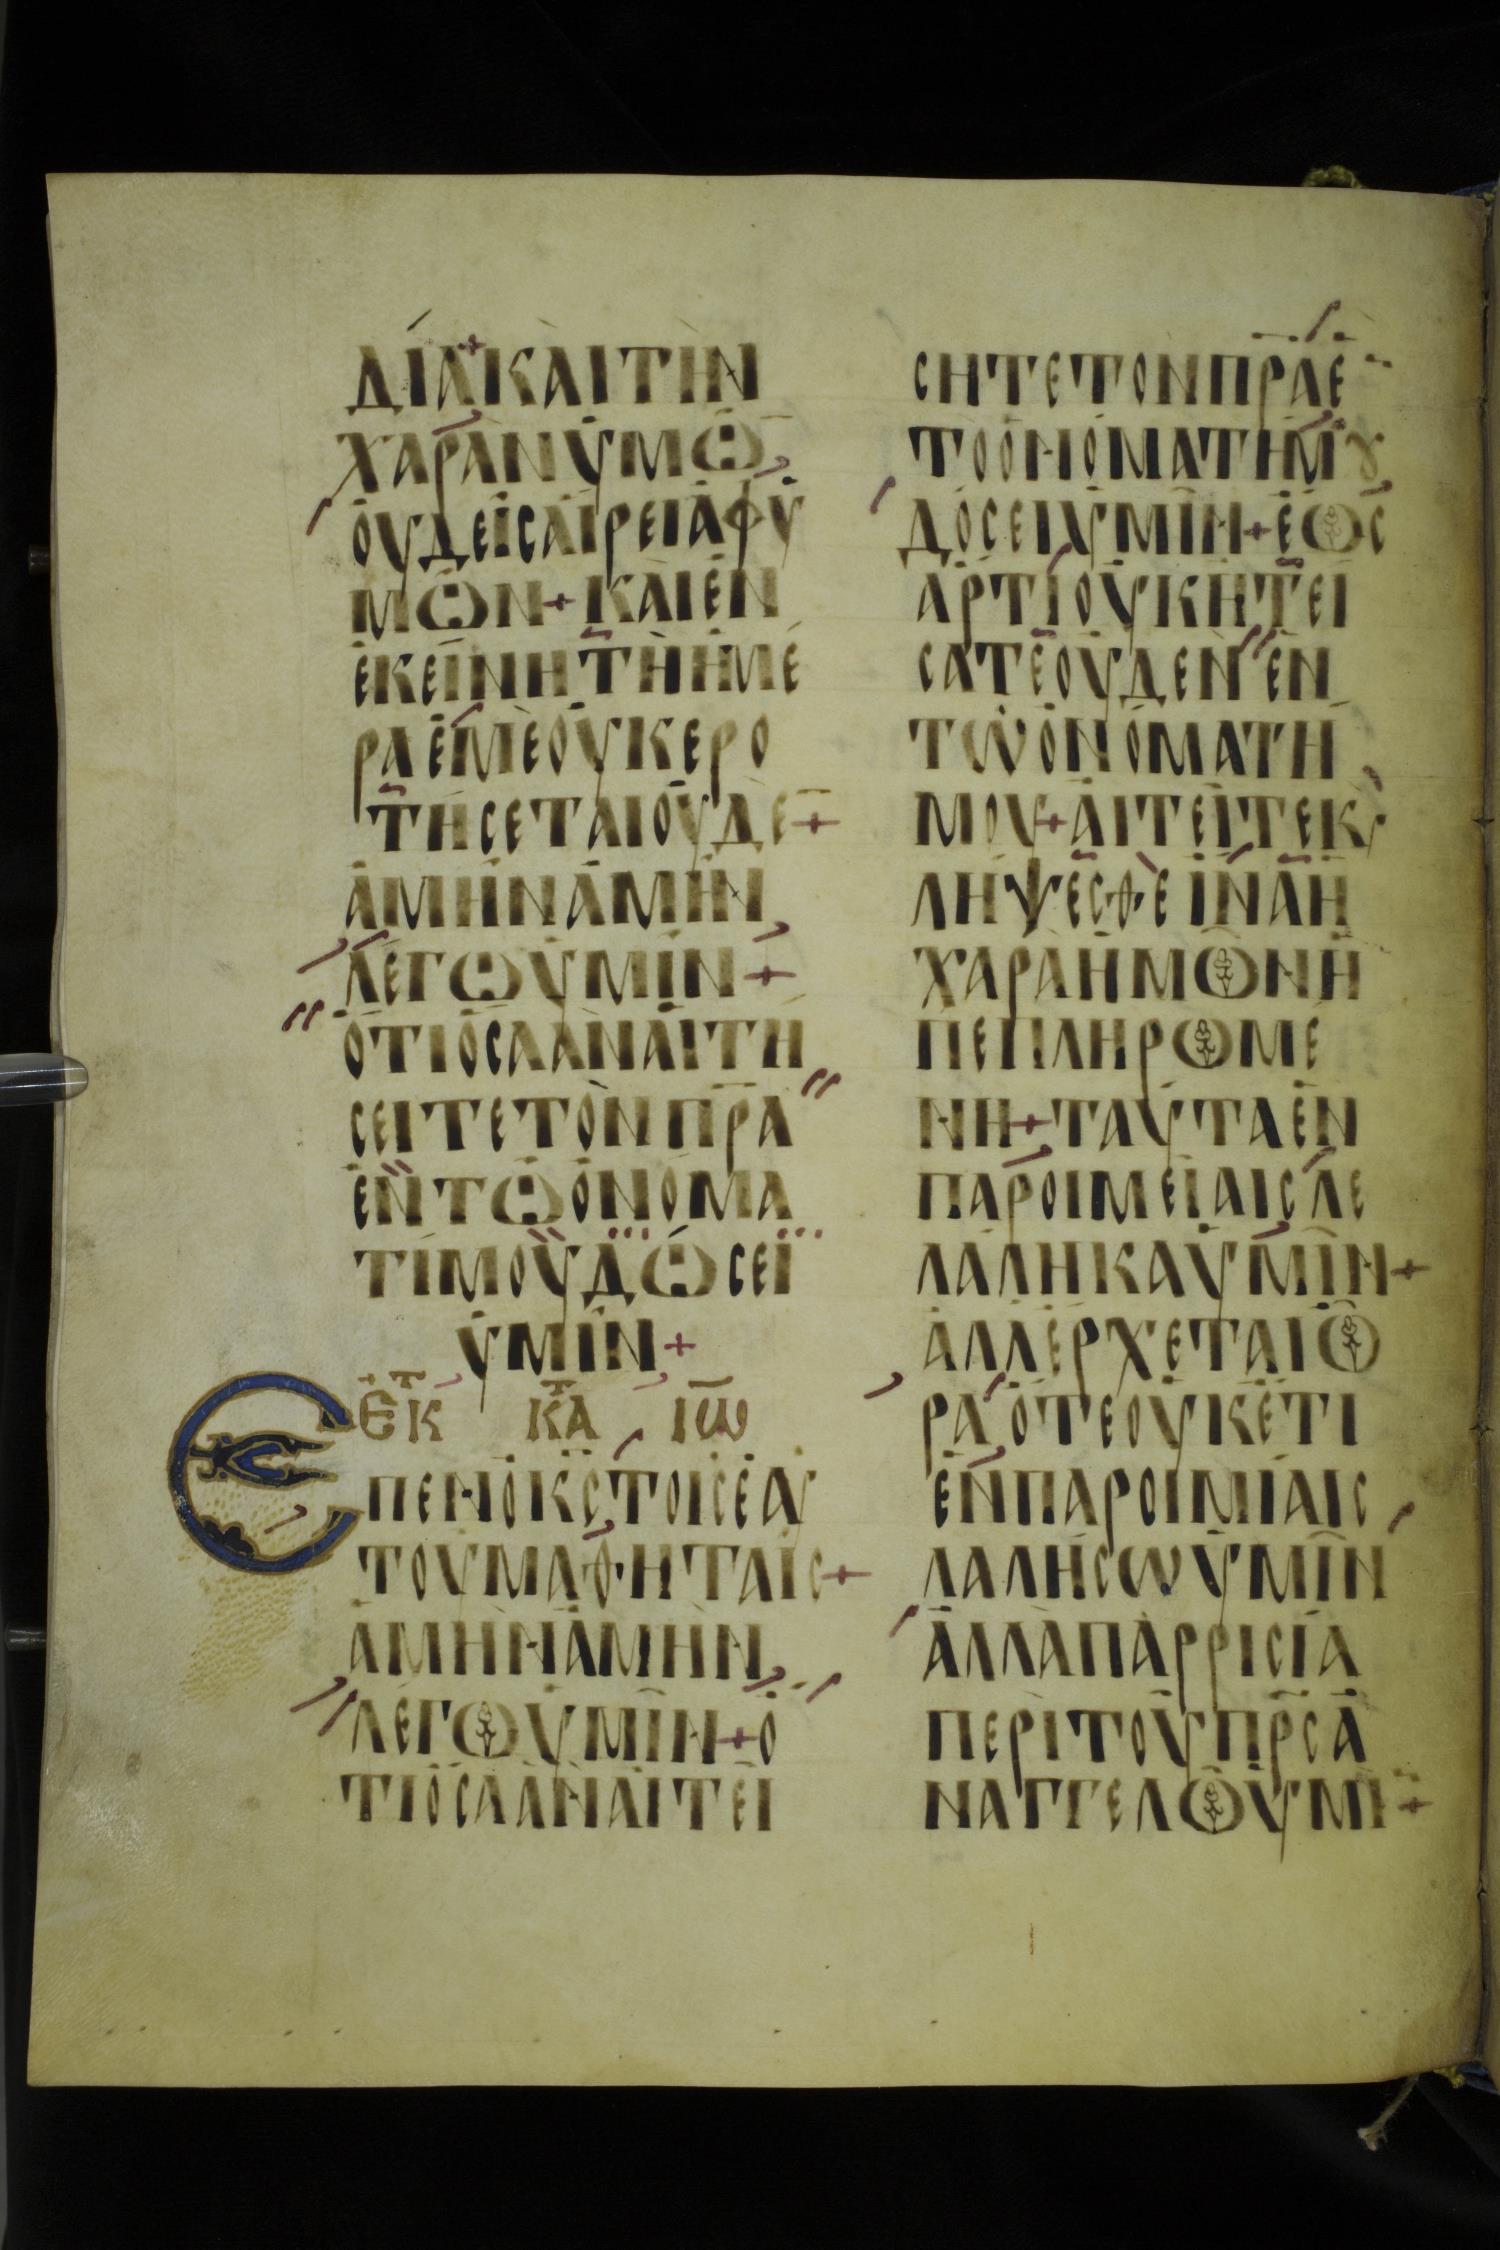 ΔΙΑ+ΚΑΙΤΗΝ
ΧΑΡΑΝΥΜΩ̅
ΟΥΔΕΙΣΑΙΡΕΙΑΦΥ
ΜΩΝ+ΚΑΙΕΝ
ΕΚΕΙΝΗΤΗΗΜΕ
ΡΑΕΜΕΟΥΚΕΡΟ
ΤΗΣΕΤΑΙΟΥΔΕ̅+
ΑΜΗΝΑΜΗΝ
ΛΕΓΩΥΜΙΝ+
ΟΤΙΟΣΑΑΝΑΙΤΗ
ΣΕΙΤΕΤΟΝΠΡ̅Α
ΕΝΤΩΟΝΟΜΑ
ΤΙΜΟΥΔΩΣΕΙ
ΥΜΙΝ+
ΕΚΤ ΚΑΤ ΙΩ̅
ΕΙΠΕΝΟΚ̅Σ̅ΤΟΙΣΕΑΥ
ΤΟΥΜΑΘΗΤΑΙΣ+
ΑΜΗΝΑΜΗΝ
ΛΕΓΩΥΜΙΝ+Ο
ΤΙΟΣΑΑΝΑΙΤΕΙ
ΣΗΤΕΤΟΝΠΡ̅ΑΕ̅
ΤΟΟΝΟΜΑΤΗΜȢ
ΔΟΣΕΙΥΜΙΝ+ΕΩΣ
ΑΡΤΙΟΥΚΗΤΕΙ
ΣΑΤΕΟΥΔΕΝΕΝ
ΤΩΟΝΟΜΑΤΗ
ΜΟΥ+ΑΙΤΕΙΤΕΚϛ
ΛΗΨΕΣΘΕΙΝΑΗ
ΧΑΡΑΗΜΩΝΗ
ΠΕΠΛΗΡΩΜΕ
ΝΗ+ΤΑΥΤΑΕΝ
ΠΑΡΟΙΜΕΙΑΙΣΛΕ
ΛΑΛΗΚΑΥΜΙΝ+
ΑΛΛΕΡΧΕΤΑΙΩ
ΡΑΟΤΕΟΥΚΕΤΙ
ΕΝΠΑΡΟΙΜΙΑΙΣ
ΛΑΛΗΣΩΥΜΙΝ
ΑΛΛΑΠΑΡΡΙΣΙΑ
ΠΕΡΙΤΟΥΠΡ̅ΣΑ
ΝΑΓΓΕΛΩΥΜΙ̅+